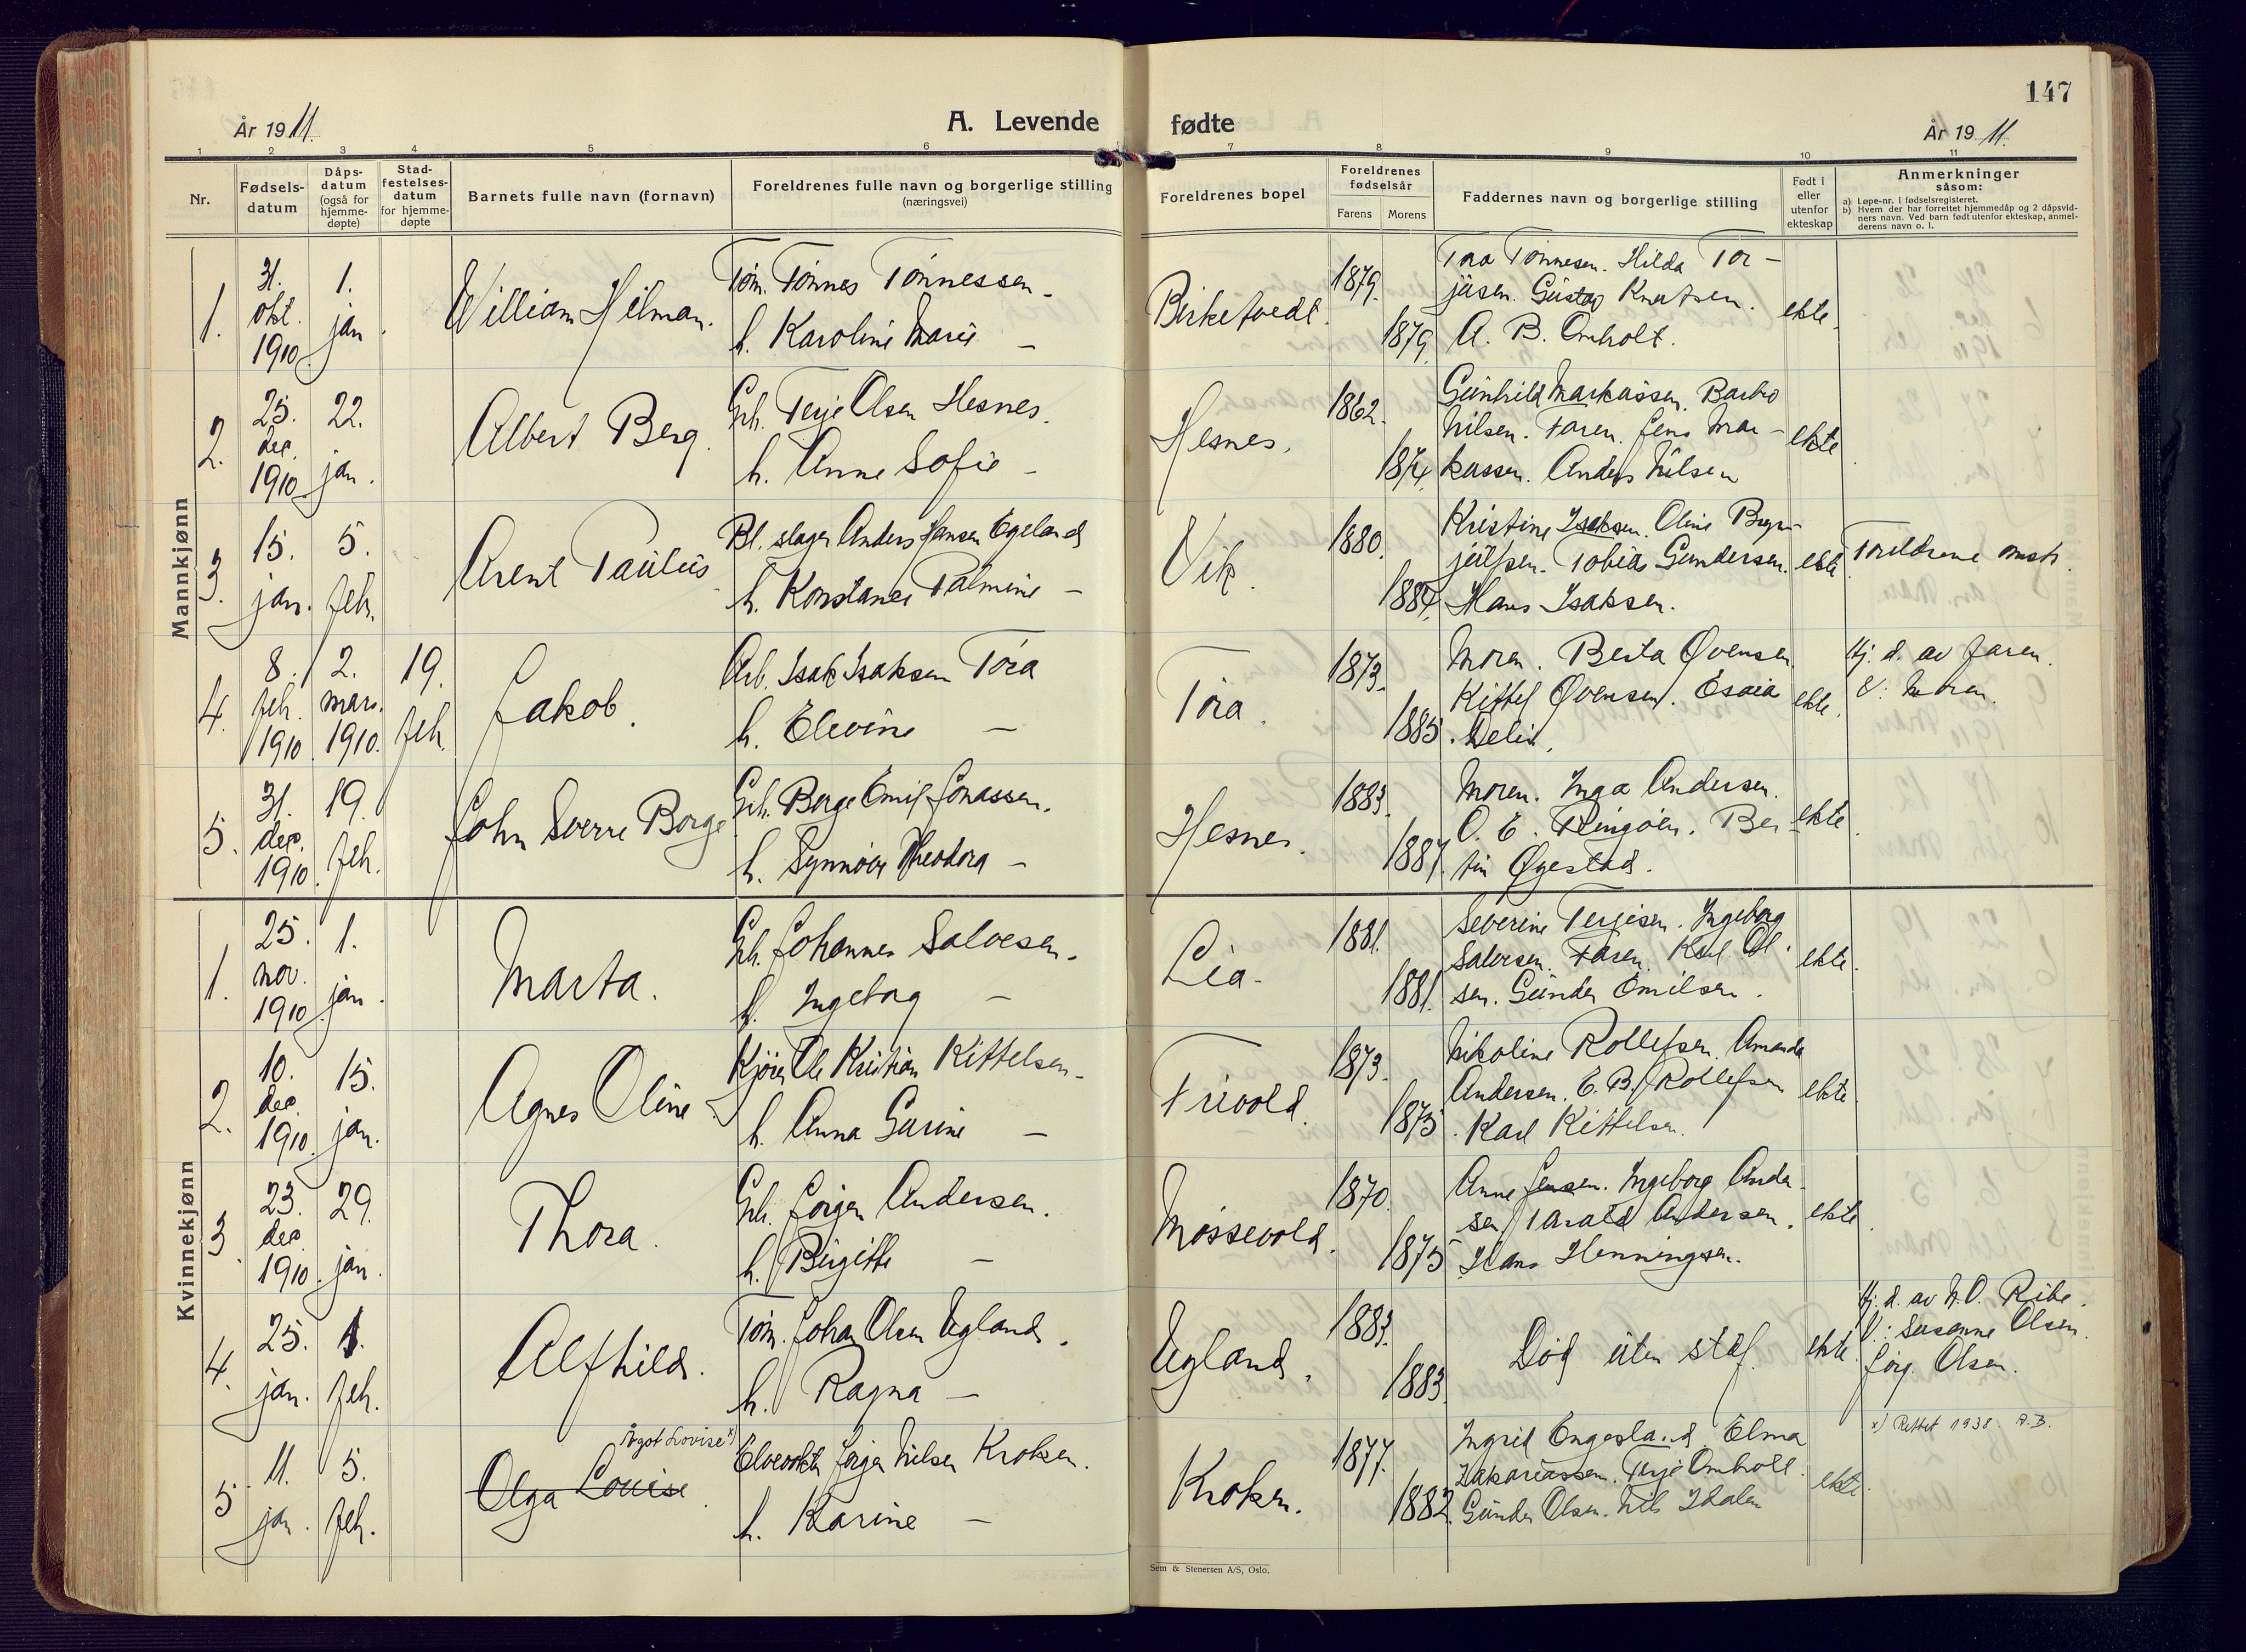 147
År 1911.
A. Levende fødte
År 1911.
1 2 3 4 5 6 7 8 9 10 11
Nr.
Fødsels-
datum
Dåps-
datum
(også for
hjemme-
døpte)
Stad-
festelses-
datum
for hjemme-
døpte
Barnets fulle navn (fornavn)
Foreldrenes fulle navn og borgerlige stilling
(næringsvei)
Foreldrenes bopel
Foreldrenes
fødselsår
Farens Morens
Faddernes navn og borgerlige stilling
Født i
eller
utenfor
ekteskap
Anmerkninger
såsom:
a) Løpe-nr. i fødselsregisteret.
b) Hvem der har forrettet hjemmedåp og 2 dåpsvid-
ners navn. Ved barn født utenfor ekteskap, anmel-
derens navn o. l.
Mannkjønn
1.
31.
okt.
1910
1.
jan.
William Hilman.
Tøm. Tønnes Tønnessen.
h. Karoline Marie —
Birketvedt.
1879.
1879.
Tønnesen. Hilda Tor-
jusen. Gustav Knutsen.
A. B. Omholt.
ekte.
2.
25.
dec.
1910
22.
jan.
Albert Berg.
Grb. Terje Olsen Hesnes.
h. Anne Sofie —
Hesnes.
1862.
Gunhild Markussen. Barbro
Nilsen. Faren. Jens Mar-
kussen. Anders Nilsen
ekte
3.
15.
jan.
5.
feb.
Arent Paulus
Bl. slager Anders Jensen Egeland
h. Konstance Palmine —
Vik.
1880.
1884.
Kristine Isaksen. Oline Bryn-
julfsen. Tobias Gundersen.
Hans Isaksen.
ekte
Foreldrene
4.
8.
feb.
1910
2.
mars.
1910.
19.
feb.
Jakob.
Arb. Isak Isaksen Tøra
h. Elevine —
Tøra.
1873.
1885.
Moren. Berta Øvensen.
Kittel Øvensen. Esaia
ekte.
Hj. d. av faren.
V: Moren.
5.
31.
dec.
1910.
19.
feb.
John Sverre Borge
Grb. Borge Emil Jonassen.
h. Synnøve Theodora —
Hesnes.
1883.
1887.
Moren. Inga Andersen.
O. E. Ringøen. Ber-
tin Øgestad.
ekte.
Kvinnekjønn
1.
25.
nov.
1910.
1.
jan.
Marta.
Grb. Johannes Salvesen.
h. Ingeborg —
Lia.
1881.
1881.
Severine Terjesen. Ingeborg
Salvesen. Faren. Karl Ol-
sen. Gunder Emilsen.
ekte.
2.
10.
dec.
1910.
15.
jan.
Agnes Oline
Kjører Ole Kristian Kittelsen.
h. Anna Gurine —
Frivold.
1873.
1875.
Nikoline Rollefsen. Amanda
Andersen. E. B. Rollefsen
Karl Kittelsen.
ekte.
3.
23.
dec.
1910.
29.
jan.
Thora.
Grb. Jørgen Andersen.
h. Birgitte —
Møssevold.
1870.
1875
Anne Jensen. Ingeborg Ander-
sen. Tarald Andersen.
Hans Henningsen.
ekte.
4.
25.
jan.
1.
feb.
Alfhild.
Tøm. Johan Olsen Ugland.
h. Ragna —
Ugland.
1883.
1883.
Død uten staf.
ekte.
Hj. d. av N. O. Ribe.
V: Susanne Olsen.
Jørg. Olsen.
5
11.
jan.
5.
feb.
Ågot Lovise x)
Olga Louise.
Elvevokter Jørgen Nilsen Kroken.
h. Karine —
Kroken.
1877.
1882.
Ingrid Engesland. Elma
Zakariassen. Terje Omholt.
Gunder Olsen. Nils
ekte.
x) Rettet 1938. A.B.
Sem & Stenersen A/S, Oslo.